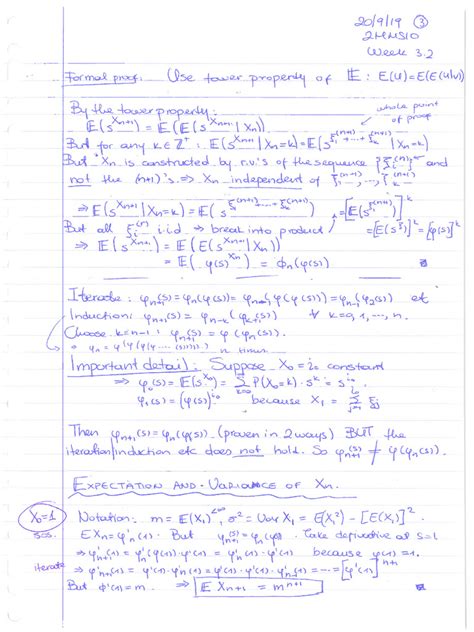 20/9/19 ③
2MMS10
Week 3.2
Formal proof: Use tower property of 𝔼: E(U)=E(E(U|V))
By the tower property:
𝔼(s^{X_{n+1}}) = 𝔼(𝔼(s^{X_{n+1}} | X_n)) whole point of proof
But for any k∈ℤ⁺: 𝔼(s^{X_{n+1}} | X_n=k) = 𝔼(s^{ξ_1^{(n+1)}+...+ξ_k^{(n+1)}} | X_n=k)
But X_n is constructed by r.v.'s of the sequence {ξ_i^{(n)}}, and
not the (n+1)'s. ⇒ X_n independent of ξ_1^{(n+1)}, ..., ξ_k^{(n+1)}
⇒ 𝔼(s^{X_{n+1}} | X_n=k) = 𝔼(s^{ξ_1^{(n+1)}+...+ξ_k^{(n+1)}}) = [𝔼(s^{ξ^{(n+1)}})]^k
But all ξ_i^{(n)} i.i.d. ⇒ break into product = [𝔼(s^ξ)]^k = [φ(s)]^k
⇒ 𝔼(s^{X_{n+1}}) = 𝔼(𝔼(s^{X_{n+1}} | X_n))
= 𝔼(φ(s)^{X_n}) = φ_n(φ(s))
Iterate: φ_{n+1}(s) = φ_n(φ(s)) = φ_{n-1}(φ(φ(s))) = φ_{n-1}(φ_2(s)) etc
Induction: φ_{n+1}(s) = φ_{n-k}(φ_{k+1}(s)) ∀ k=0,1,...,n.
Choose k=n-1: φ_{n+1}(s) = φ(φ_n(s)).
φ_n = φ(φ(φ(φ.....(s)))) n times
Important detail: Suppose X_0 = i_0 constant
⇒ φ_0(s) = 𝔼(s^{X_0}) = Σ_{k=0}^∞ P(X_0=k)·s^k = s^{i_0}
φ_1(s) = (φ(s))^{i_0} because X_1 = Σ_{j=1}^{i_0} ξ_j
Then φ_{n+1}(s) = φ_n(φ(s)) (proven in 2 ways) BUT the
iteration/induction etc does not hold. So φ_{n+1}(s) ≠ φ(φ_n(s)).
EXPECTATION AND VARIANCE OF X_n.
X_0=1 Notation: m = 𝔼(X_1) <∞, σ² = Var X_1 = 𝔼(X_1²) - [𝔼(X_1)]².
𝔼X_n = φ_n'(1). But φ_{n+1}(s) = φ_n(φ(s)). Take derivative at s=1
⇒ φ'_{n+1}(1) = φ_n'(φ(1))·φ'(1) = φ_n'(1)·φ'(1) because φ(1)=1.
iterate ⇒ φ'_{n+1}(1) = φ'(1)·φ_n'(1) = φ'(1)·φ'(1)·φ'_{n-1}(1) = ... = [φ'(1)]^{n+1}
But φ'(1) = m. ⇒ 𝔼X_{n+1} = m^{n+1}